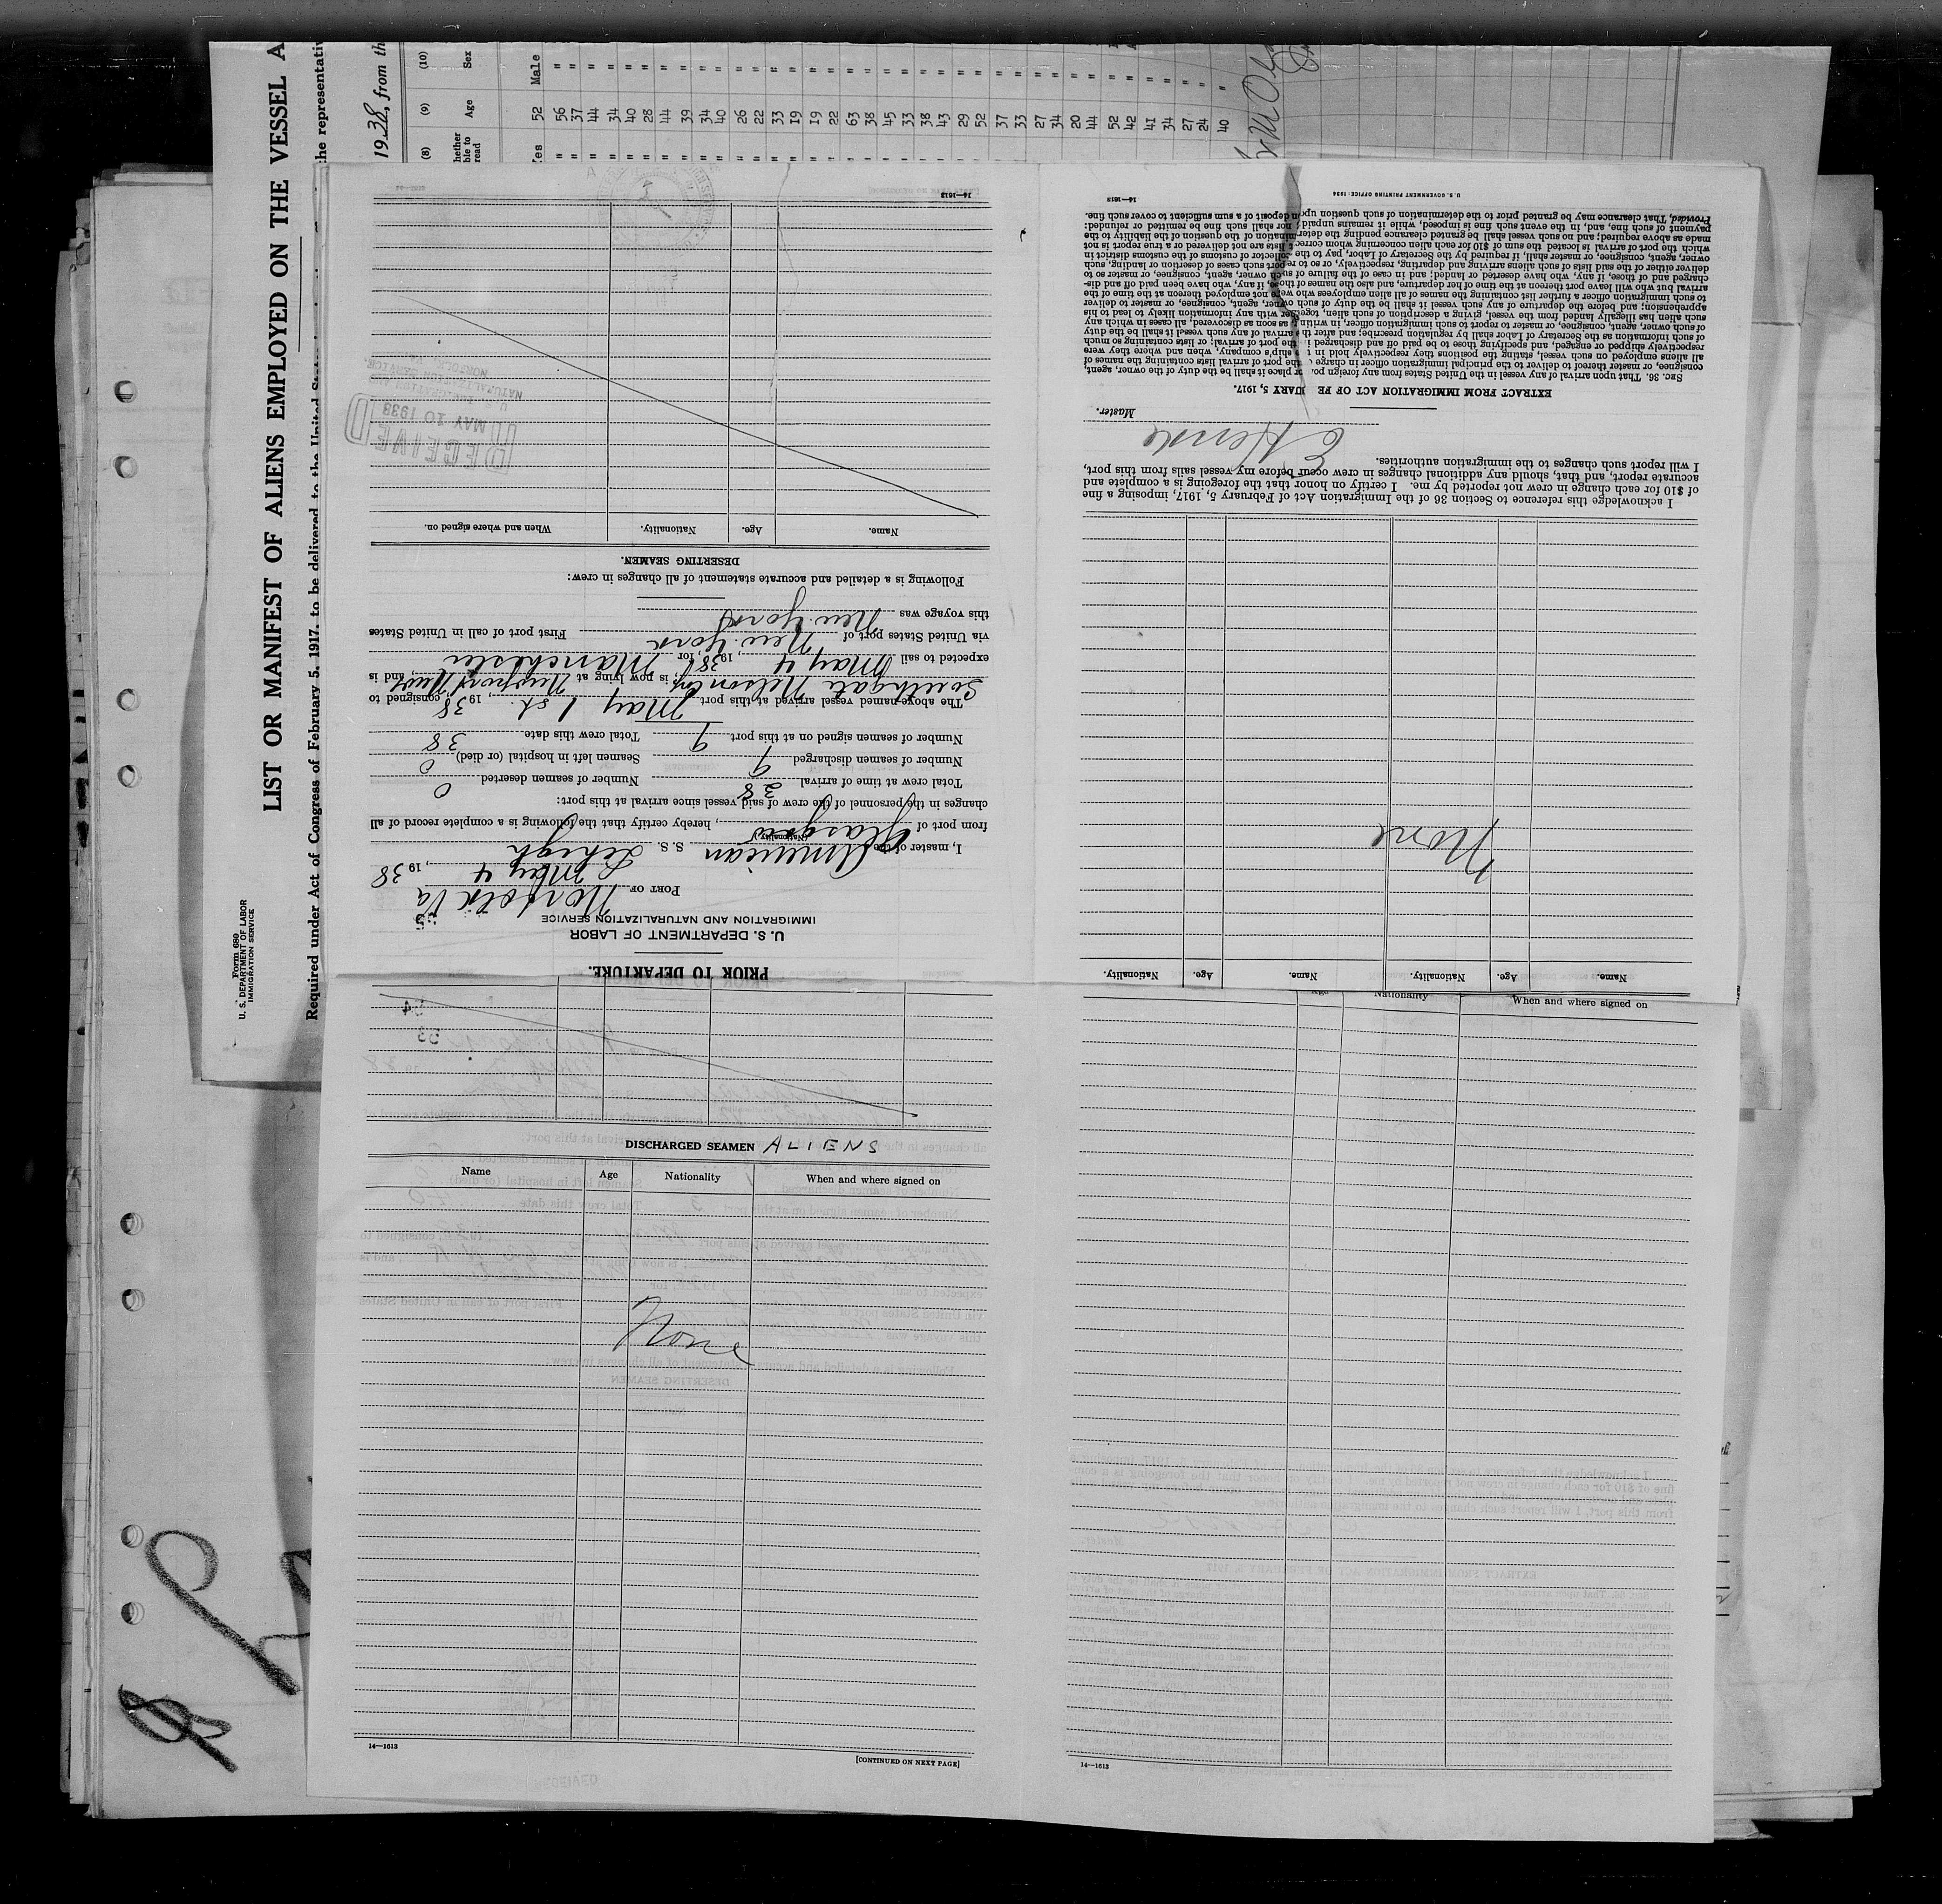 LIST OR MANIFEST OF ALIENS EMPLOYED ON THE VESSEL A
Required under Act of Congress of February 5, 1917, to be delivered to the United
he representativ
1938, from th
Form 680
U. S. DEPARTMENT OF LABOR
IMMIGRATION SERVICE
(8) (9) (10)
hether ble to read Age Sex
Yes 52 Male
" 56 "
" 37 "
" 44 "
" 34 "
" 40 "
" 28 "
" 44 "
" 39 "
" 34 "
" 40 "
" 26 "
" 22 "
" 33 "
" 19 "
" 19 "
" 22 "
" 63 "
" 38 "
" 45 "
" 33 "
" 38 "
" 43 "
" 29 "
" 52 "
" 37 "
" 33 "
" 27 "
" 34 "
" 20 "
" 44 "
" 52 "
" 42 "
" 41 "
" 34 "
" 27 "
" 24 "
" 40 "
PRIOR TO DEPARTURE.
U. S. DEPARTMENT OF LABOR
IMMIGRATION AND NATURALIZATION SERVICE
55
PORT OF Norfolk Va
May 4, 1938
I, master of the American S. S. Lehigh
(Nationality)
from port of Glasgow, hereby certify that the following is a complete record of all
changes in the personnel of the crew of said vessel since arrival at this port:
Total crew at time of arrival 38 Number of seamen deserted 0
Number of seamen discharged 9 Seamen left in hospital (or died) 0
Number of seamen signed on at this port 9 Total crew this date 38
The above-named vessel arrived at this port May 1 st, 1938, consigned to
Southgate Nelson Corp; is now lying at Newport News, and is
expected to sail May 4, 1938, for Manchester
via United States port of New York First port of call in United States
this voyage was New York
Following is a detailed and accurate statement of all changes in crew:
DESERTING SEAMEN.
Name. Age. Nationality. When and where signed on.
RECEIVED
MAY 10 1938
NATURALIZATION SERVICE
NORFOLK, VA.
14—1613
Name. Age. Nationality. Name. Age. Nationality.
None
I acknowledge this reference to Section 36 of the Immigration Act of February 5, 1917, imposing a fine
of $10 for each change in crew not reported by me. I certify on honor that the foregoing is a complete and
accurate report, and that, should any additional changes in crew occur before my vessel sails from this port,
I will report such changes to the immigration authorities.
Master.
EXTRACT FROM IMMIGRATION ACT OF FE UARY 5, 1917.
SEC. 36. That upon arrival of any vessel in the United States from any foreign po r place it shall be the duty of the owner, agent,
consignee, or master thereof to deliver to the principal immigration officer in charge the port of arrival lists containing the names of
all aliens employed on such vessel, stating the positions they respectively hold in t ship's company, when and where they were
respectively shipped or engaged, and specifying those to be paid off and discharged i the port of arrival; or lists containing so much
of such information as the Secretary of Labor shall by regulation prescribe; and after th arrival of any such vessel it shall be the duty
of such owner, agent, consignee, or master to report to such immigration officer, in writin as soon as discovered, all cases in which any
such alien has illegally landed from the vessel, giving a description of such alien, together with any information likely to lead to his
apprehension; and before the departure of any such vessel it shall be the duty of such owner, agent, consignee, or master to deliver
to such immigration officer a further list containing the names of all alien employees who were not employed thereon at the time of the
arrival but who will leave port thereon at the time of her departure, and also the names of those, if any, who have been paid off and dis-
charged and of those, if any, who have deserted or landed; and in case of the failure of such owner, agent, consignee, or master so to
deliver either of the said lists of such aliens arriving and departing, respectively, or so to report such cases of desertion or landing, such
owner, agent, consignee, or master, shall, if required by the Secretary of Labor, pay to the collector of customs of the customs district in
which the port of arrival is located the sum of $10 for each alien concerning whom correct lists are not delivered or a true report is not
made as above required; and no such vessel shall be granted clearance pending the determination of the question of the liability to the
payment of such fine, and, in the event such fine is imposed, while it remains unpaid, nor shall such fine be remitted or refunded:
Provided, That clearance may be granted prior to the determination of such question upon deposit of a sum sufficient to cover such fine.
14—1613
U. S. GOVERNMENT PRINTING OFFICE: 1934
54
53
DISCHARGED SEAMEN ALIENS
Name Age Nationality When and where signed on
None
14—1613
[CONTINUED ON NEXT PAGE]
Age Nationality When and where signed on
14—1613